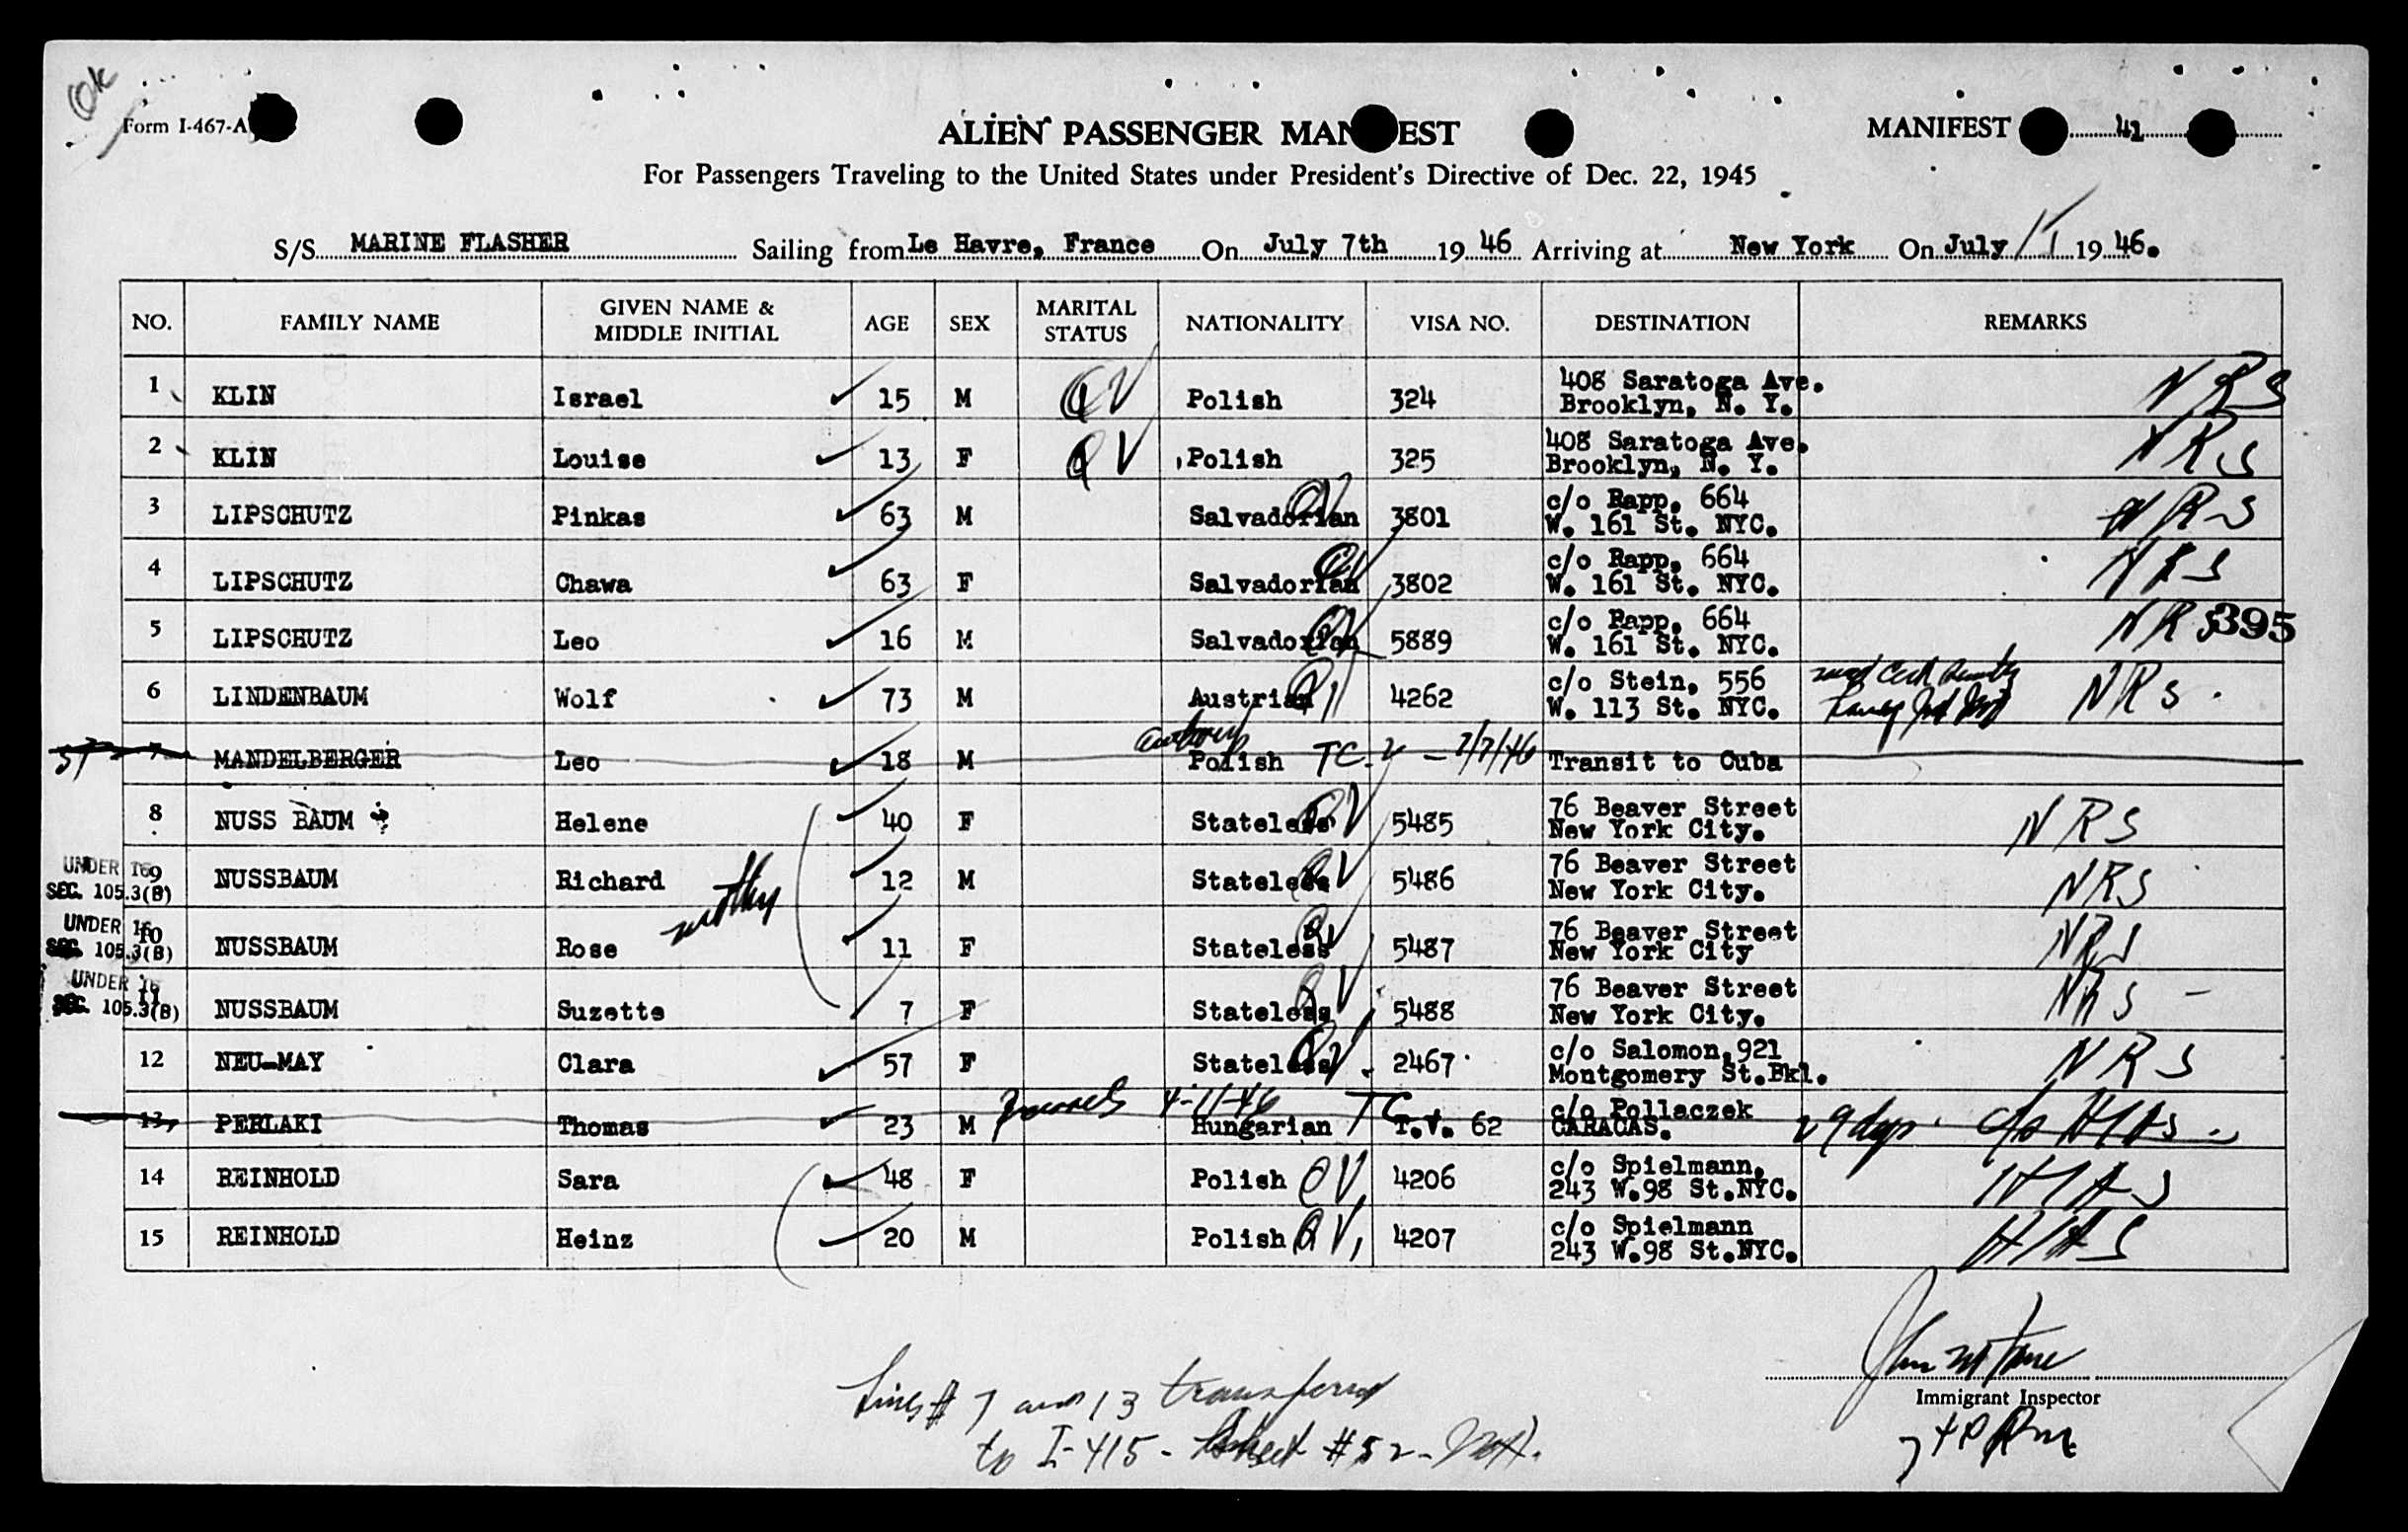 OK
Form I-467-A
ALIEN PASSENGER MAN EST
MANIFEST 42
For Passengers Traveling to the United States under President's Directive of Dec. 22, 1945
S/S MARINE FLASHER Sailing from Le Havre, France On July 7th 19 46 Arriving at New York On July 19 46.
NO. FAMILY NAME GIVEN NAME & MIDDLE INITIAL AGE SEX MARITAL STATUS NATIONALITY VISA NO. DESTINATION REMARKS
1 KLIN Israel 15 M QV Polish 324 408 Saratoga Ave. Brooklyn, N. Y. NRS
2 KLIN Louise 13 F QV Polish 325 408 Saratoga Ave. Brooklyn, N. Y. NRS
3 LIPSCHUTZ Pinkas 63 M Salvadorian QV 3801 c/o Rapp, 664 W. 161 St. NYC. NRS
4 LIPSCHUTZ Chawa 63 F Salvadorian QV 3802 c/o Rapp, 664 W. 161 St. NYC. NRS
5 LIPSCHUTZ Leo 16 M Salvadorian QV 5889 c/o Rapp, 664 W. 161 St. NYC. NRS 395
6 LINDENBAUM Wolf 73 M Austrian QV 4262 c/o Stein, 556 W. 113 St. NYC. NRS
7 MANDELBERGER Leo 18 M Polish TC.V - 7/7/46 Transit to Cuba
8 NUSS BAUM Helene 40 F Stateless QV 5485 76 Beaver Street New York City. NRS
UNDER 16 SEC. 105.3(B) 9 NUSSBAUM Richard 12 M Stateless QV 5486 76 Beaver Street New York City. NRS
mother
UNDER 16 SEC. 105.3(B) 10 NUSSBAUM Rose 11 F Stateless QV 5487 76 Beaver Street New York City NRS
UNDER 16 SEC. 105.3(B) 11 NUSSBAUM Suzette 7 F Stateless QV 5488 76 Beaver Street New York City. NRS
12 NEU-MAY Clara 57 F Stateless QV 2467 c/o Salomon, 921 Montgomery St. Bkl. NRS
13 PERLAKI Thomas 23 M 4-11-46 Hungarian TC T.V. 62 c/o Pollaczek CARACAS. 29 days c/o HIAS
14 REINHOLD Sara 48 F Polish QV 4206 c/o Spielmann, 243 W.98 St.NYC. HIAS
15 REINHOLD Heinz 20 M Polish QV 4207 c/o Spielmann 243 W.98 St.NYC. HIAS
Immigrant Inspector
Lines # 7 and 13 transferred
to I-415 - Sheet #52